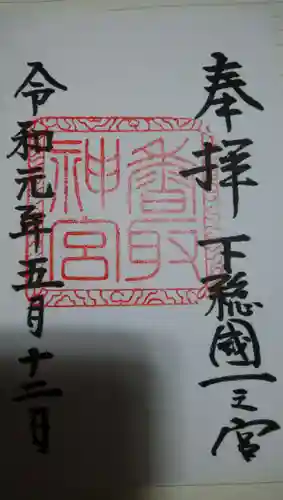 奉拝
下総國一之宮
香取神宮
令和元年五月十二日